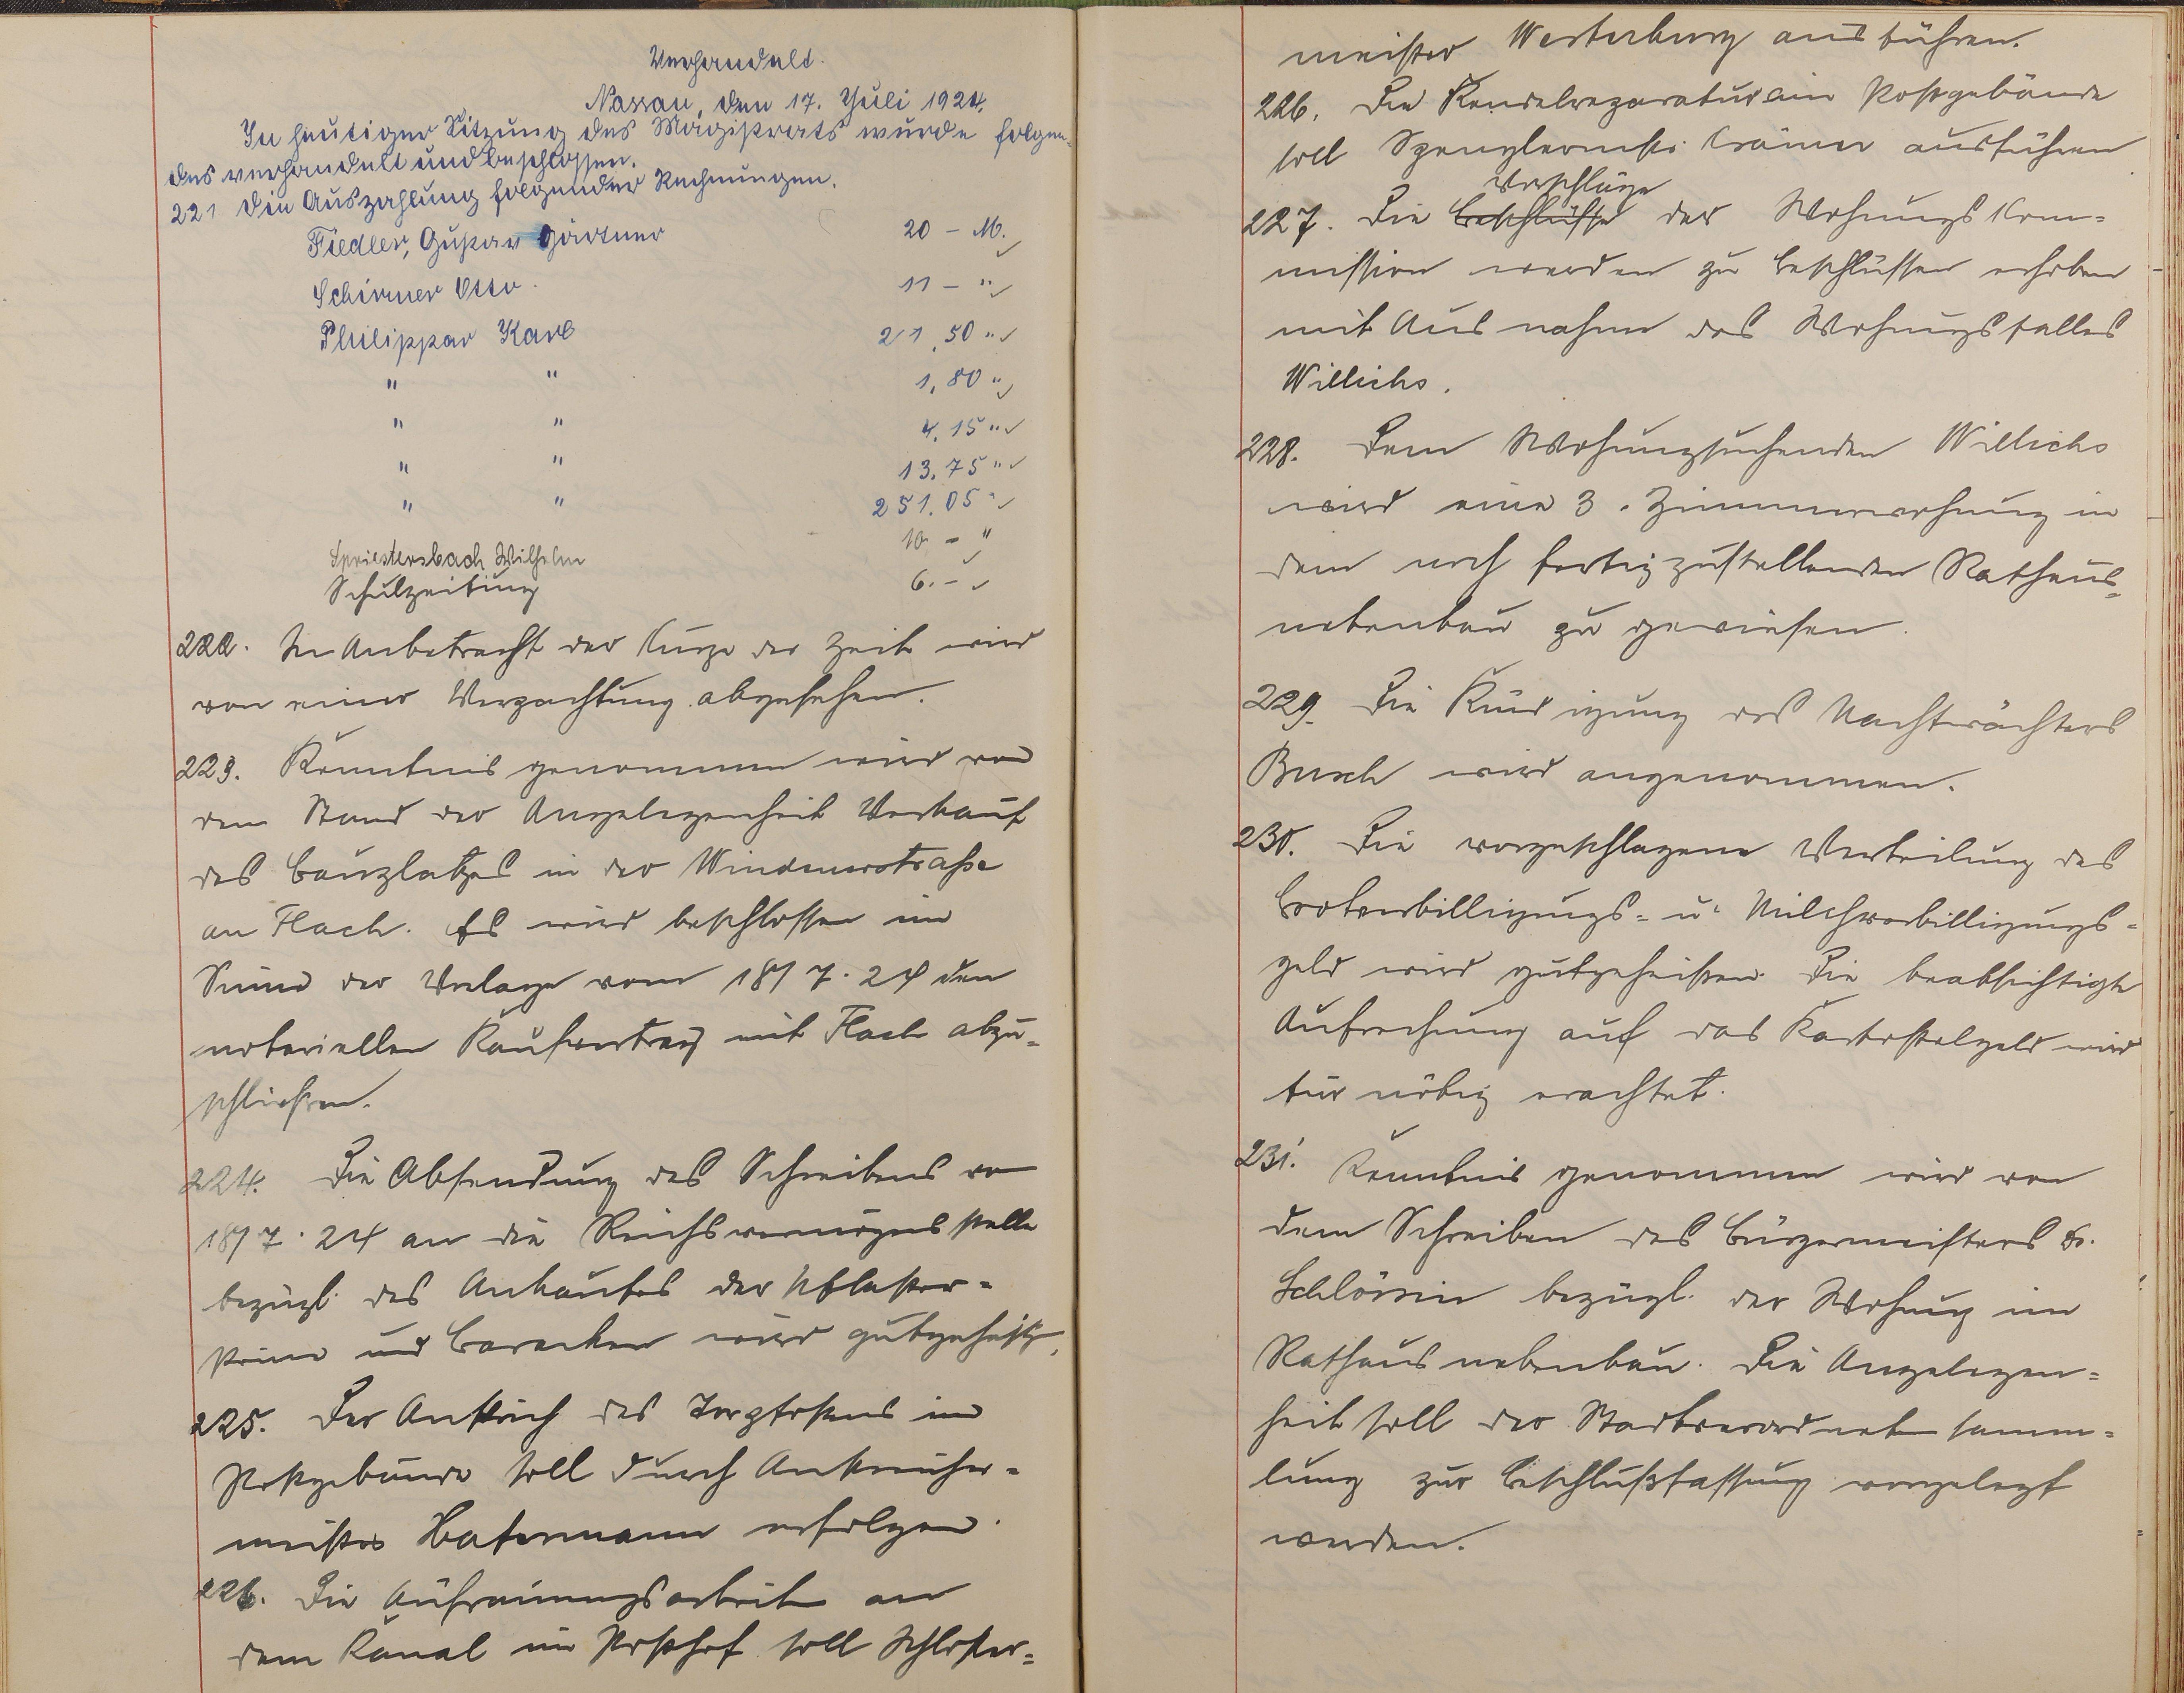 Verhandelt.
Nassau, den 17. Juli 1924.
In heutiger Sitzung des Magistrats wurde folgen-
des verhandelt und beschlossen.
221 Die Auszahlung folgender Rechnungen.
Fiedler, Gustav Gärtner 20 – M.
Schirmer Otto. 11 – "
Philippar Karl 21,50 "
" " 1,80 "
" " 4,15 "
" " 13,75 "
" " 251,05 "
Spriestersbach Wilhelm 10 – "
Schulzeitung 6. –
222. In Anbetracht der Kürze der Zeit wird
von einer Verpachtung abgesehen.
223. Kenntnis genommen wird von
dem Stand der Angelegenheit Verkauf
des Bauplatzes in der Windenerstraße
an Flach. Es wird beschlossen im
Sinne der Vorlage vom 18/7.24 den
notariellen Kaufvertrag mit Flach abzu-
schließen.
224. Die Absendung des Schreibens vo
18/7.24 an die Reichsvermögensstelle
bezügl. des Ankaufes der Pflaster-
steine und Baracken wird gutgeheiß.
225. Der Anstrich des Torpfostens im
Postgebäude soll durch Anstreicher-
meister Hafermann erfolgen.
226. Die Aufräumungsarbeiten an
dem Kanal im Posthof soll Schlosser-
meister Westerburg ausführen.
226. Die Kendelreparatur am Postgebäude
soll Spenglermstr. Crämer ausführen
Vorschläge
227. Die Beschlüsse der Wohnungskom-
mission werden zu Beschlüssen erhoben
mit Ausnahme des Wohnungsfalles
Willichs.
228. Dem Wohnungsuchenden Willichs
wird eine 3. Zimmerwohnung in
dem noch fertigzustellenden Rathaus-
nebenbau zu gewiesen.
229. Die Kündigung des Nachtwächters
Busch wird angenommen.
230. Die vorgeschlagene Verteilung des
Brotverbilligungs- u. Milchverbilligungs-
geld wird gutgeheißen. Die beabsichtigte
Aufrechnung auf das Kartoffelgeld wird
für nötig erachtet.
231. Kenntnis genommen wird von
dem Schreiben des Bürgermeisters Dr.
Schlössin bezügl. der Wohnung im
Rathausnebenbau. Die Angelegen-
heit soll der Stadtverordnetensamm-
lung zur Beschlußfassung vorgelegt
werden.